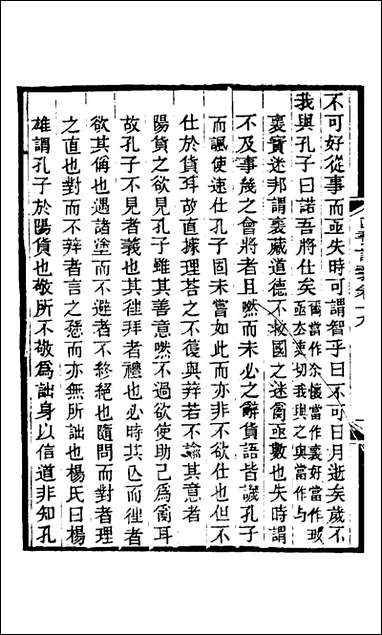 不可好從事而亟失時可謂智乎曰不可日月逝矣歲不
我與孔子曰諾吾將仕矣
爾當作尒懷當作褱好當作
亟去吏切我與之與當作与
褱寶迷邦謂褱藏道德不救國之迷𤔔亟數也失時謂
不及事幾之會將者且然而未必之辭貨語皆譏孔子
而諷使速仕孔子固未嘗如此而亦非不欲仕也但不
仕於貨耳故直據理荅之不復與辯若不諭其意者
陽貨之欲見孔子雖其善意然不過欲使助己爲𤔔耳
故孔子不見者義也其往拜者禮也必時其亾而往者
欲其稱也遇諸塗而不避者不終絕也隨問而對者理
之直也對而不辯者言之孫而亦無所詘也楊氏曰楊
雄謂孔子於陽貨也敬所不敬爲詘身以信道非知孔